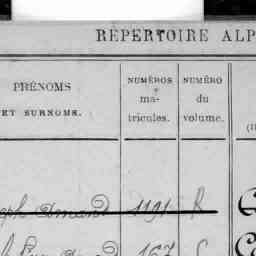 RÉPERTOIRE ALP
PRÉNOMS
ET SURNOMS.
NUMÉROS
ma-
tricules.
NUMÉRO
du
volume.
(I
eph Amand 1191 R
167